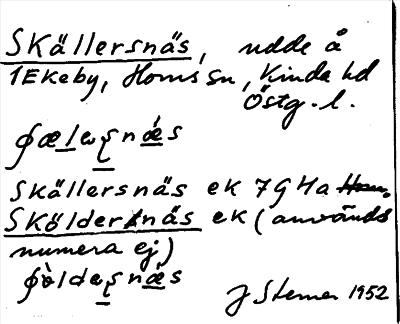 Skällersnäs, udde å
1 Ekeby, Horns sn, Kinda hd
Östg. l.
ɸæ̱lɘʂnǽ̱s
Skällersnäs ek 7G Ha
Sköldernäs ek (används
numera ej)
ɸø̀ldɘʂnǽ̱s
J Stemer 1952